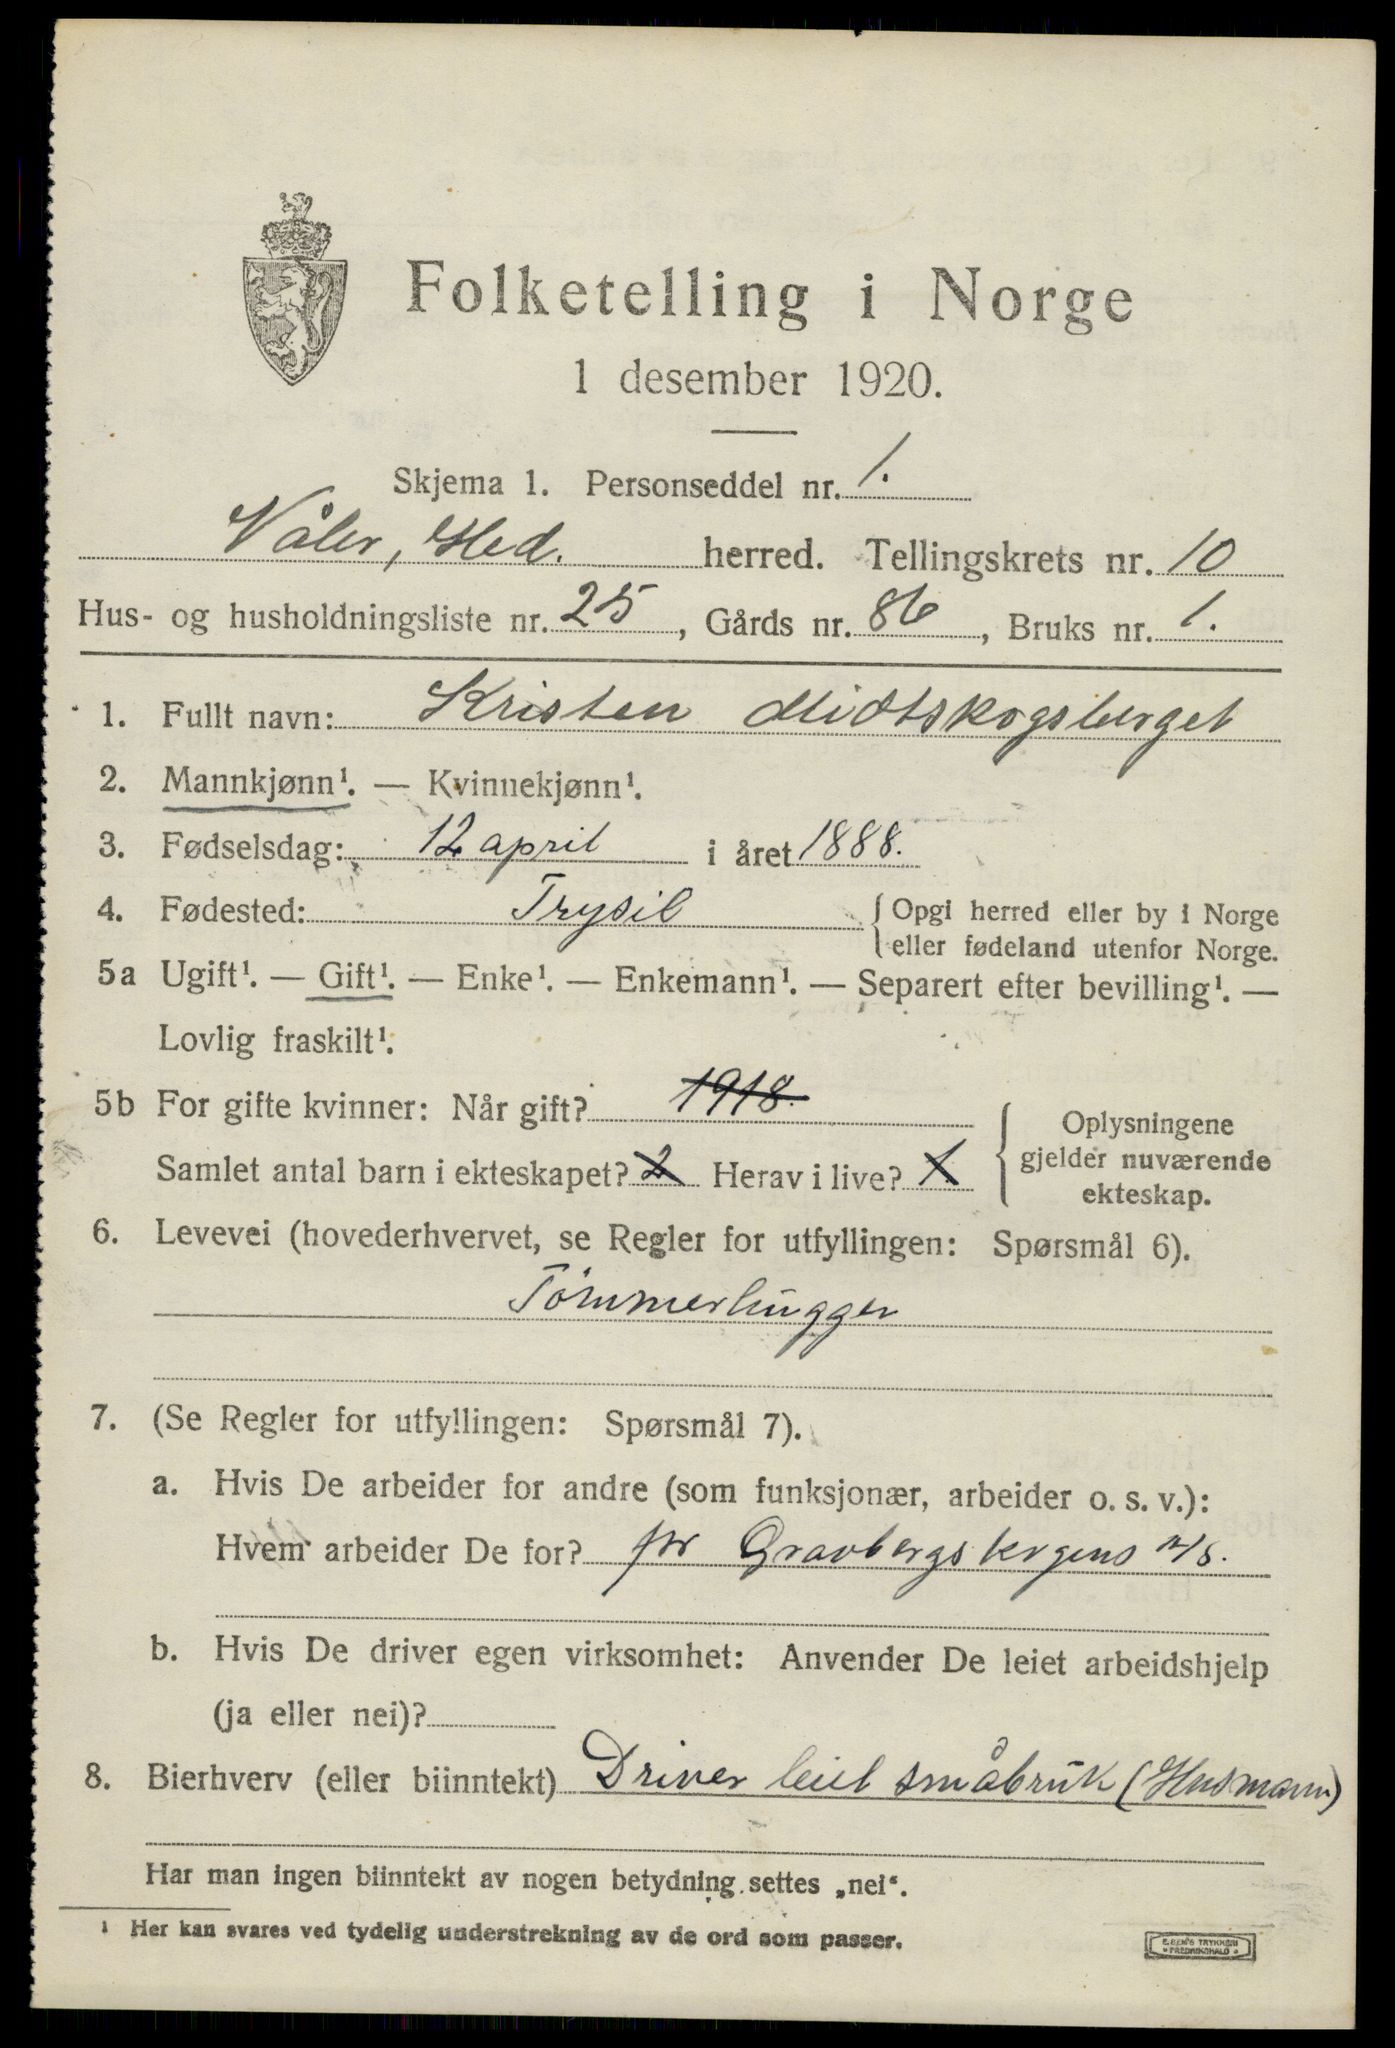 Folketelling i Norge
1 desember 1920.
Skjema 1. Personseddel nr. 1.
Våler, Hed. herred. Tellingskrets nr. 10
Hus- og husholdningsliste nr. 25, Gårds nr. 86, Bruks nr. 1.
1. Fullt navn: Kristen Midtskogsberget
2. Mannkjønn¹. — Kvinnekjønn¹.
3. Fødselsdag: 12 april i året 1888.
4. Fødested: Trysil { Opgi herred eller by i Norge
eller fødeland utenfor Norge.
5a Ugift¹. — Gift¹. — Enke¹. — Enkemann¹. — Separert efter bevilling¹. —
Lovlig fraskilt¹.
5b For gifte kvinner: Når gift? 1918.
Samlet antal barn i ekteskapet? 2 Herav i live? 1
{ Oplysningene
gjelder nuværende
ekteskap.
6. Levevei (hovederhvervet, se Regler for utfyllingen: Spørsmål 6).
Tömmerhugger
7. (Se Regler for utfyllingen: Spørsmål 7).
a. Hvis De arbeider for andre (som funksjonær, arbeider o. s. v.):
Hvem arbeider De for? for Gravbergskogens A/s.
b. Hvis De driver egen virksomhet: Anvender De leiet arbeidshjelp
(ja eller nei)?
8. Bierhverv (eller biinntekt) Driver leiet småbruk (Husmann)
Har man ingen biinntekt av nogen betydning settes „nei“.
¹ Her kan svares ved tydelig understrekning av de ord som passer.
E. BEN'S TRYKKERI
FREDRIKSHALD